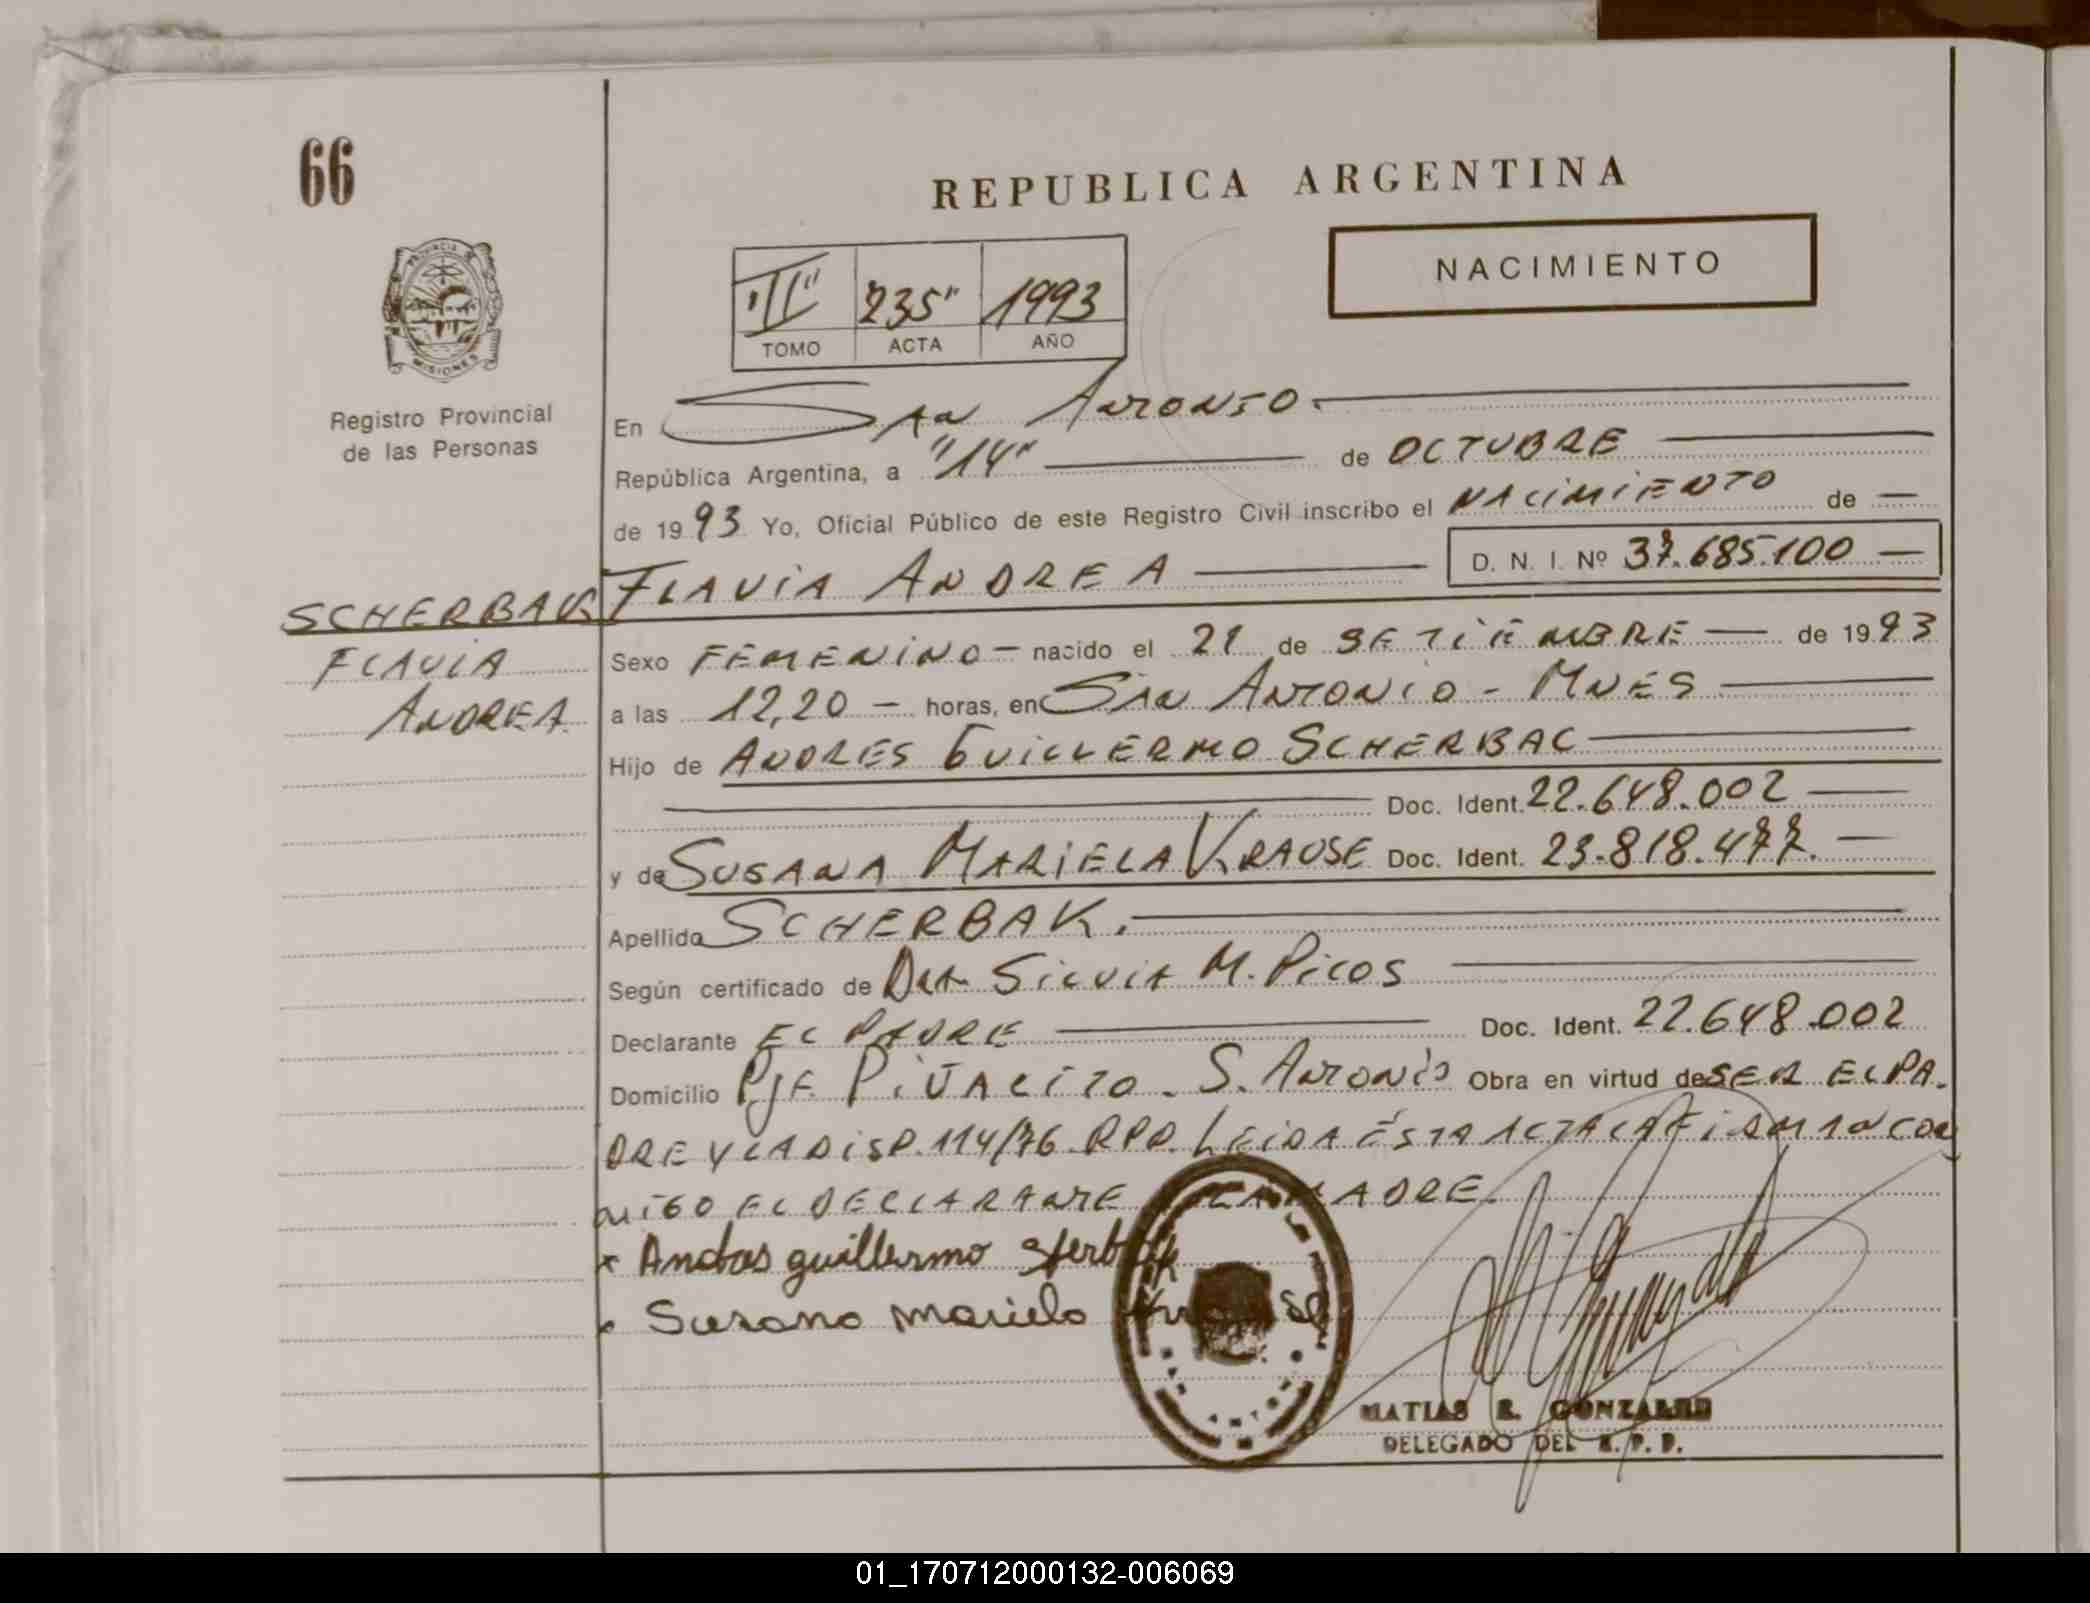 66
REPUBLICA ARGENTINA
NACIMIENTO
"III" "235" 1993
TOMO ACTA AÑO
PROVINCIA DE MISIONES
Registro Provincial
de las Personas
En San Antonio.
República Argentina, a "14" de OCTUBRE
de 1993 Yo, Oficial Público de este Registro Civil inscribo el NACIMIENTO de —
FLAVIA ANDREA — D. N. I. Nº 37.685.100 —
SCHERBAK
FLAVIA
ANDREA
Sexo FEMENINO — nacido el 21 de SETIEMBRE — de 1993
a las 12,20 — horas, en SAN ANTONIO - MNES
Hijo de ANDRES GUILLERMO SCHERBAC
Doc. Ident. 22.648.002
y de SUSANA MARIELA KRAUSE Doc. Ident. 23.818.477. —
Apellido SCHERBAK.
Según certificado de Dra. SILVIA M. PICOS
Declarante EL PADRE Doc. Ident. 22.648.002
Domicilio PJE. PIÑALITO - S. ANTONIO Obra en virtud de SER EL PA-
DRE Y LA DISP. 114/76 RPP. LEIDA ESTA ACTA LA FIRMAN CON
MIGO EL DECLARANTE LA MADRE.
x guillermo
x Susana Mariela
MATIAS R. GONZALEZ
DELEGADO DEL R. P. P.
01_170712000132-006069